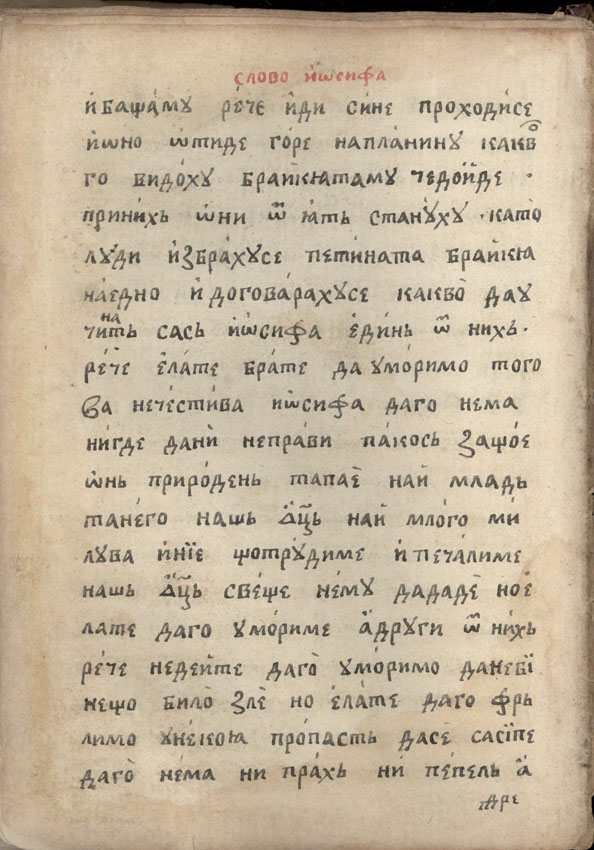 слово їѡсифа
и҆ баща́му ре́че и҆ди сине проходи́се
и҆ѡно ѿтиде го́ре напла́нину како
го видо́ху браи҆кꙗтаму чедои҆де ·
принихь ѡ҆ни ѿ ꙗть стану́ху · като̀
лу́ди и҆збра́хусе петината браи҆кꙗ
наедно и҆ догова́рахусе какво̀ дау
чинать сась и҆ѡсифа е҆динь ѿ нихь ·
ре́че е҆ла́те бра́те да умо́римо того
ва нечести́ва и҆ѡсифа даго нема
ни́где дани̏ непра́ви па́кось защо́е
ѡ҆нь приро́день тапае̏ най младь
тане́го нашь ѿц҃ь най мло́го ми
лува и҆нїе щотру́диме и҆ печа́лиме
нашь ѿц҃ь све́ще не́му дададе̏ ное̏
лате даго умо́риме а҆други ѿ ни́хь
ре́че недеи҆те даго̀ умо́римо даневї
нещо било̀ зле̏ но е҆ла́те даго фрь
лимо уне́коꙗ про́пасть дасе̏ сасїпе
даго̀ не́ма ни пра́хь ни́ пе́пель а҆
аре